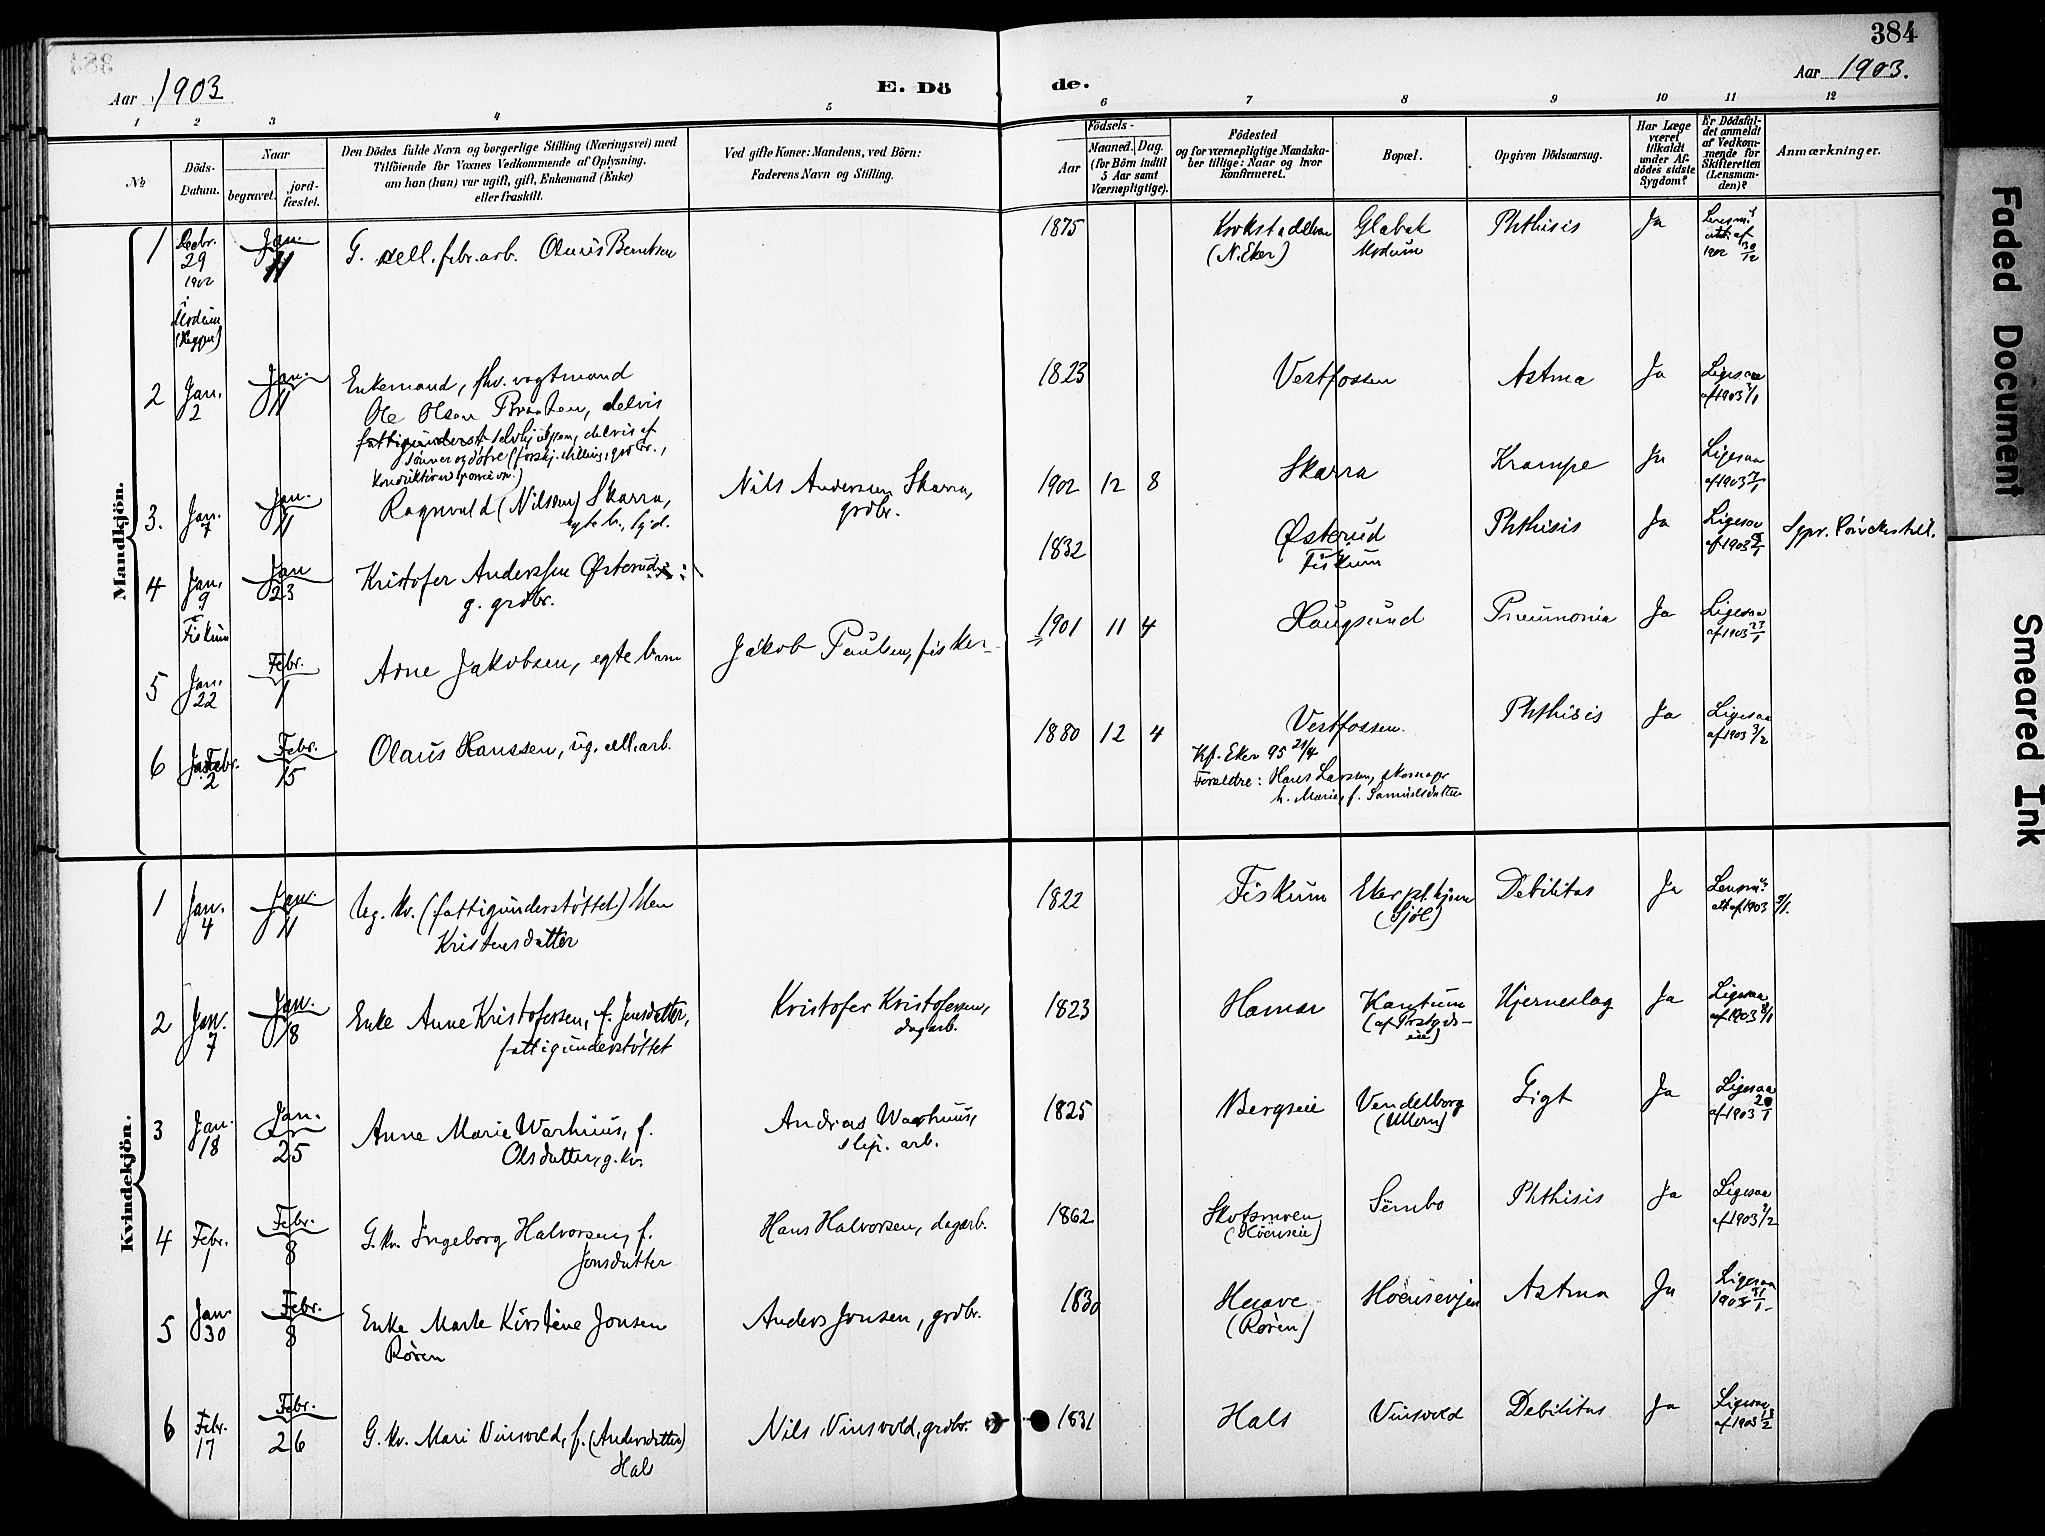 384
Aar 1903
E. Dö de.
Aar 1903.
1 2 3 4 5 6 7 8 9 10 11 12
No
Döds-Datum.
Naar
begravet.
jord-fæstet.
Den Dödes fulde Navn og borgerlige Stilling (Næringsvei) med
Tilföiende for Voxnes Vedkommende af Oplysning,
om han (hun) var ugift, gift, Enkemand (Enke)
eller fraskilt.
Ved gifte Koner: Mandens, ved Börn:
Faderens Navn og Stilling.
Födsels-
Aar
Maaned. Dag.
(for Börn indtil
5 Aar samt
Værnepligtige).
Födested
og for værnepligtige Mandska-
ber tillige: Naar og hvor
konfirmeret.
Bopæl.
Opgiven Dödsaarsag.
Har Læge
været
tilkaldt
under Af-
dödes sidste
Sygdom?
Er Dödsfal-
det anmeldt
af Vedkom-
mende for
Skifteretten
(Lensman-
den)?
Anmærkninger.
Mandkjön.
1 Decbr. 29 1902 i Modum Jan. 11 G. cell. fabr. arb. Olaus Berntsen 1875 Krokstadelven (N. Eker) Glabak Modum Phthisis Ja 1902 30/12
2 Jan. 2 Jan. 11 Enkemand, fhv. vogtmand
Ole Olsen Braaten, delvis
fattigunderst., selvhjulpen, delvis af
sønner og døtre
1823 Vestfossen Astma Ja Ligesaa af 1903
3. Jan. 7 Jan. 11 Ragnvald (Nilssen) Skarra, Nils Anderssen Skarra, grdbr. 1902 12 8 Skarra Krampe Ja Ligesaa af 1903
4 Jan. 9 i Fiskum Jan 23 Kristofer Anderssen Østerud
g. grdbr. 1832 Østerud Fiskum Phthisis Ja Ligesaa af 1903
5 Jan. 22 Febr. 1 Arne Jakobsen, egte barn Jakob Paulsen, fisker 1901 11 4 Haugsund Pneumonia Ja Ligesaa af 1903 23/1
6 Febr. 2 Febr. 15 Olaus Hanssen, ug. cell. arb. 1880 12 4 Vestfossen. Phthisis Ja Ligesaa af 1903 3/2
Kf. Eker 95 21/4
Forældre: Hans Larssen, skomager
h. Marie, f. Samuelsdatter
Kvindekjön.
1 Jan. 4 Jan. 11 Ug. kv. (fattigunderstøttet) Elen
Kristensdatter 1822 Fiskum Eker pl. hjem (Sjøl) Debilitas Ja af 1903
2 Jan. 7 Jan. 18 Enke Anne Kristofersen, f. Jensdatter,
fattigunderstøttet Kristofer Kristofersen, dagarb. 1823 Hamar Kantum Hjerneslag Ja Ligesaa af 1903
3 Jan. 18 Jan. 25 Anne Marie Warhuus, f.
Olsdatter, g. kv. Andreas Waarhuus, slip. arb. 1825 Bergseie Vendelborg (Ullern) Gigt Ja Ligesaa af 1903 20/1
4 Febr. 1 Febr. 8 G. kv. Ingeborg Halvorsen, f.
Jonsdatter Hans Halvorsen, dagarb. 1862 Skotsmoen (Høenseie) Sembo Phthisis Ja Ligesaa af 1903
5 Jan 30 Febr. 8 Enke Marte Kirstine Jonsen
Røren Anders Jonsen, grdbr. 1830 (Røren) Astma Ja Ligesaa 1903 31/1
6 Febr. 17 Febr. 26 G. kv. Mari Vinsvold, f. (Andersdatter)
Hals Nils Vinsvold, grdbr. 1831 Hals Vinsvold Debilitas Ja Ligesaa af 1903
Faded Document
Smeared Ink